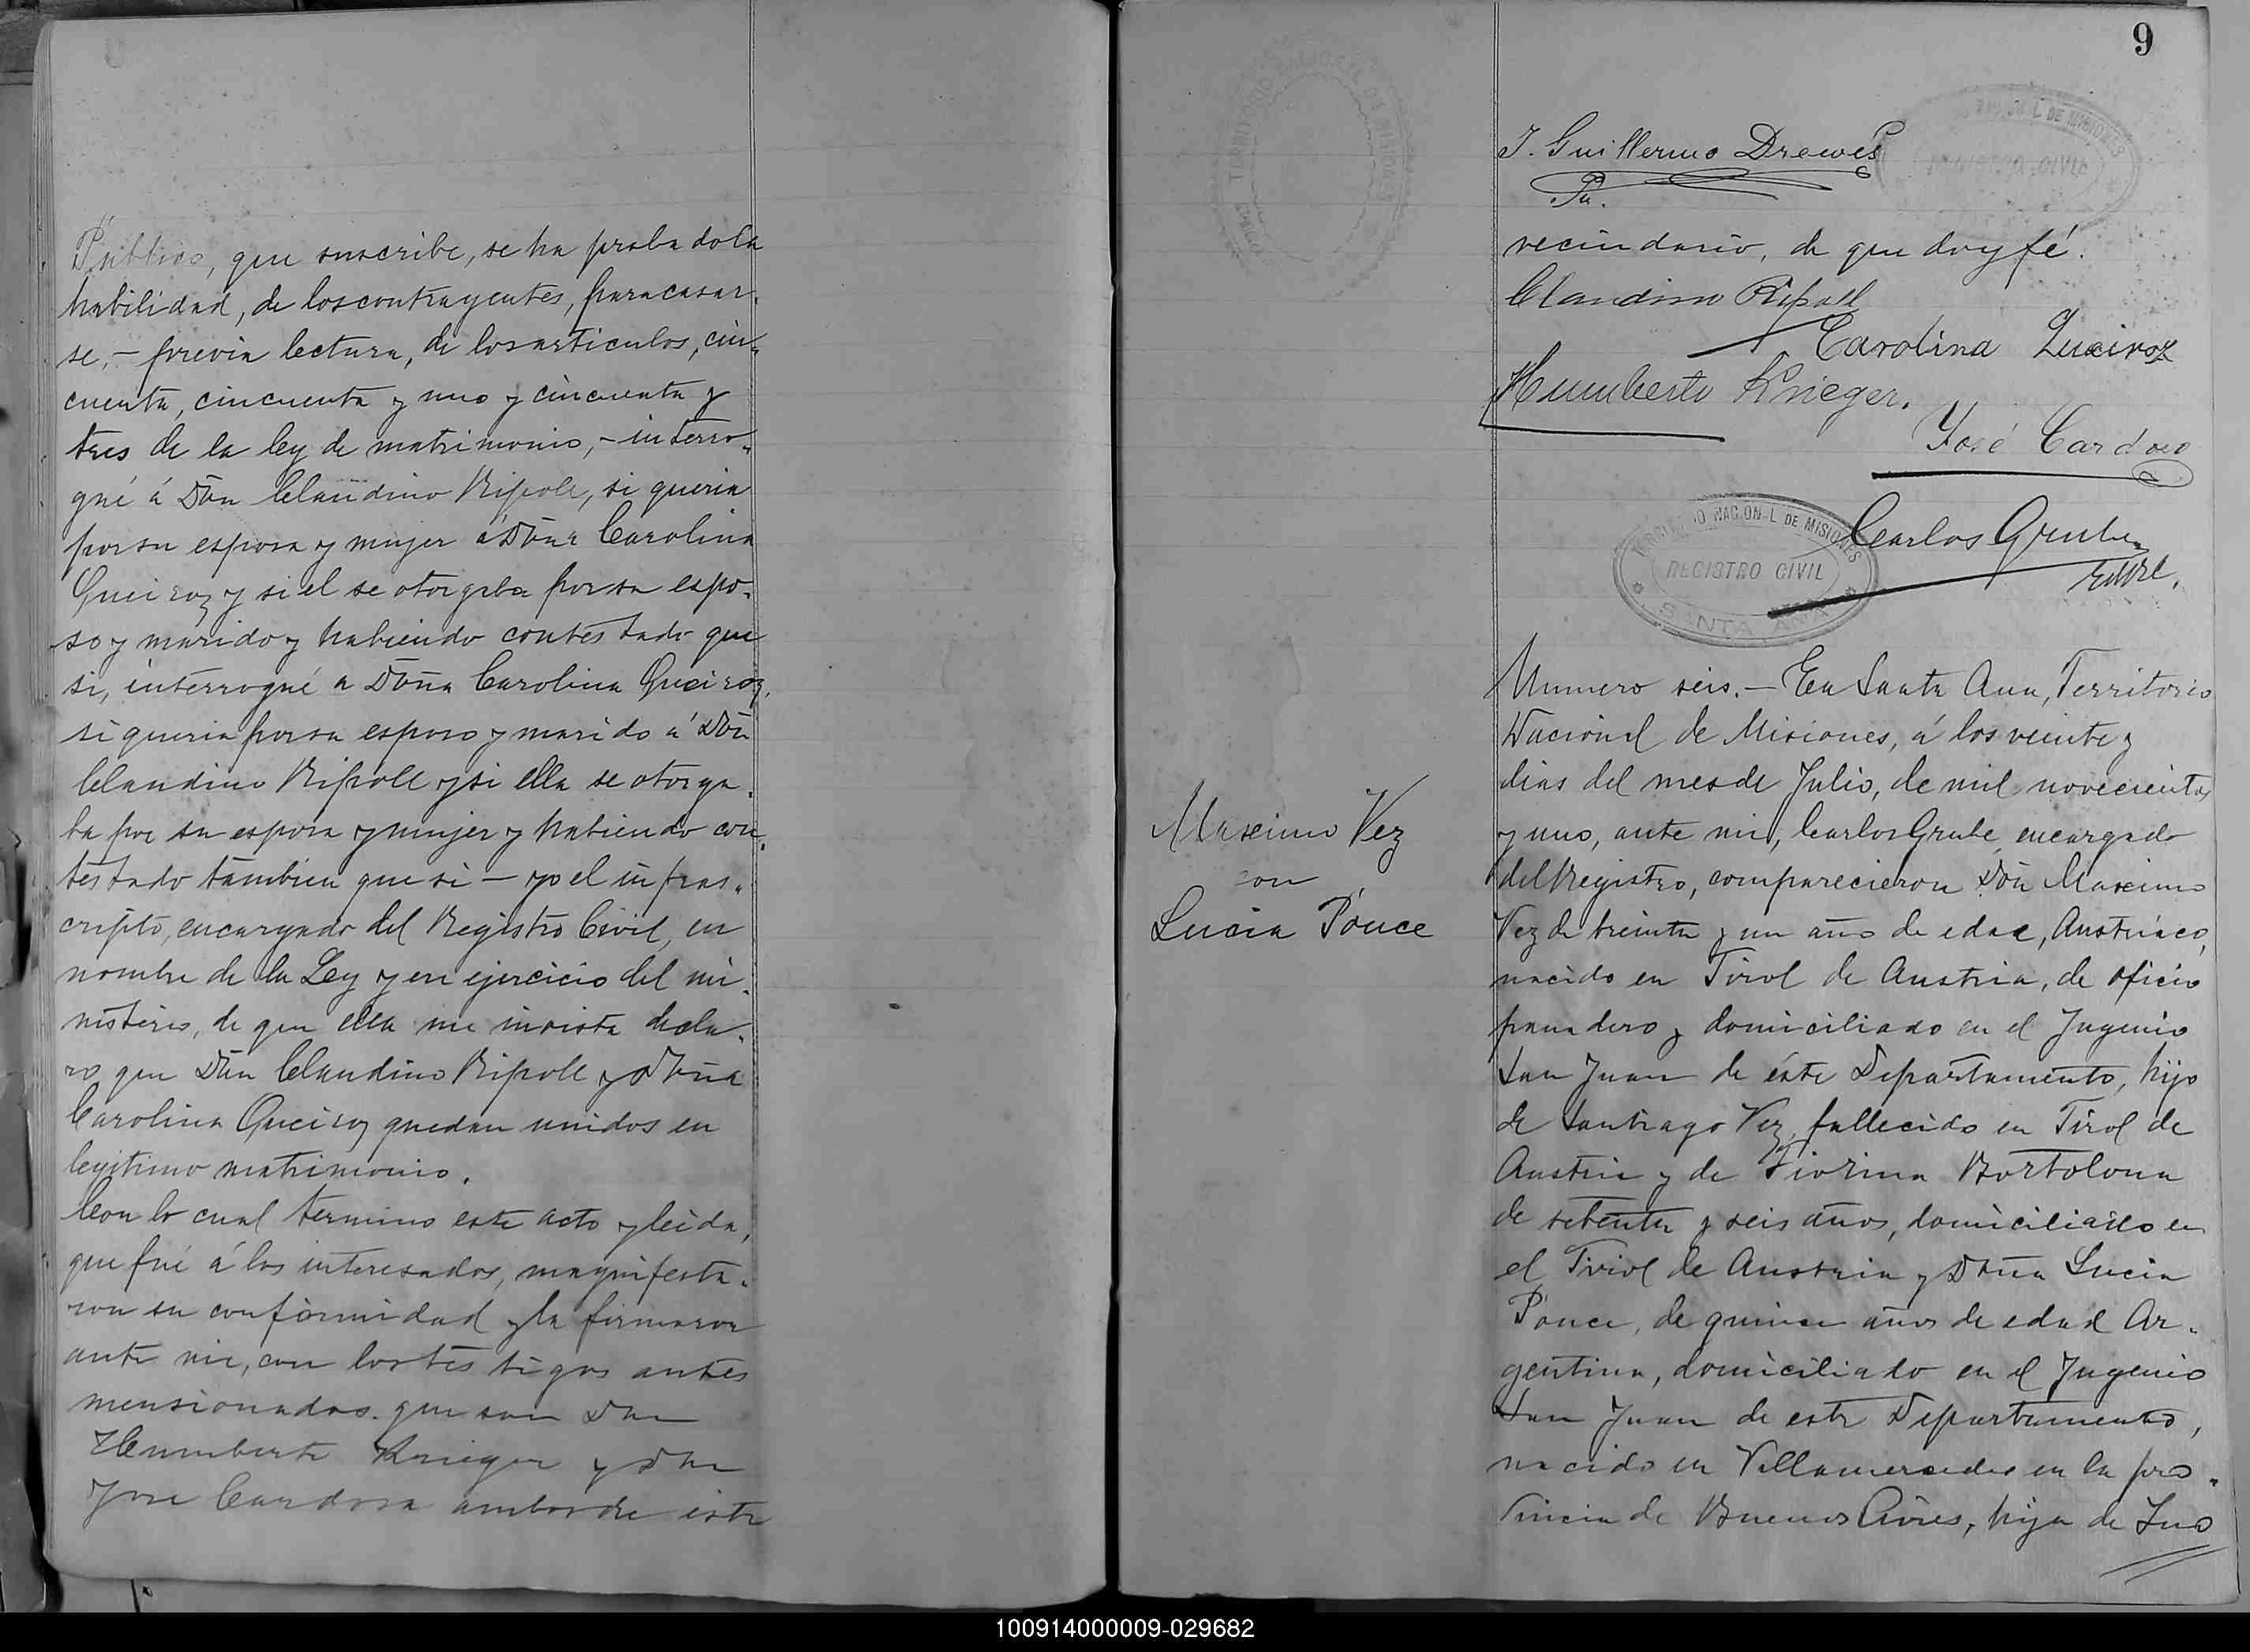 Publico, que suscribe, se ha probado la
habilidad, de los contrayentes, para casar-
se, — previa lectura, de los articulos, cin-
cuenta, cincuenta y uno y cincuenta y
tres de la ley de matrimonio, — interro-
gué á Don Claudino Ripoll, si queria
por su esposa y mujer á Doña Carolina
Queiroz y si el se otorgaba por su espo-
so y marido y habiendo contestado que
si, interrogué a Doña Carolina Queiroz,
si queria por su esposo y marido á Don
Claudino Ripoll y si ella se otorga-
ba por su esposa y mujer y habiendo con-
testado tambien que si — yo el infras-
cripto, encargado del Registro Civil, en
nombre de la Ley y en ejercicio del mi-
nisterio, de que ella me invista decla-
ro que Don Claudino Ripoll y Doña
Carolina Queiroz quedan unidos en
legitimo matrimonio.
Con lo cual termino este acto y leida,
que fué á los interesados, magnifesta-
ron su conformidad y la firmaron
ante mi, con los testigos antes
mensionados. que son Don
Humberto Krieger y Don
Jose Cardoso ambos de este
9
J. Guillermo Drewes
vecindario, de que doy fé.
Claudino Ripoll
Carolina Queiroz
Humberto Krieger.
José Cardoso
TERRITORIO NACIONAL DE MISIONES
REGISTRO CIVIL
SANTA ANA
Carlos Grube
Maximo Vez
con
Lucia Ponce
Numero seis. — En Santa Ana, Territorio
Nacional de Misiones, á los veinte y
dias del mes de Julio, de mil novecientos
y uno, ante mi, Carlos Grube, encargado
del Registro, comparecieron Don Maximo
Vez de treinta y un año de edad, Austriaco,
nacido en Tirol de Austria, de oficio
panadero y domiciliado en el Ingenio
San Juan de éste Departamento, hijo
de Santiago Vez, fallecido en Tirol de
Austria y de Fiorina Bortolona
de setenta y seis años, domiciliado en
el Tirol de Austria y Doña Lucia
Ponce, de quince años de edad Ar-
gentina, domiciliado en el Ingenio
San Juan de este Departamento,
nacido en Villamercedes en la pro-
vincia de Buenos Aires, hija de
100914000009-029682